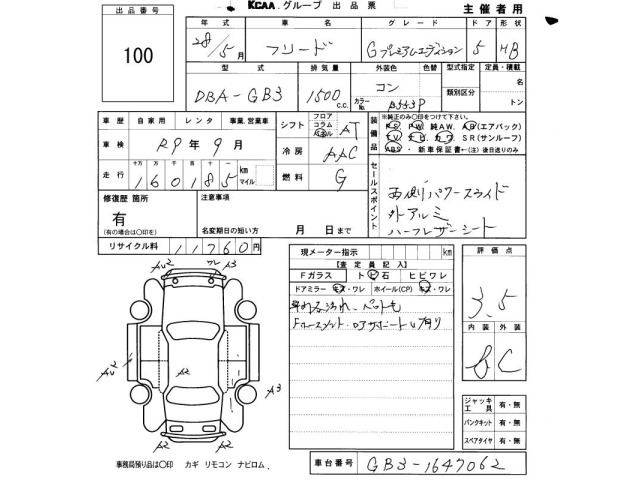 KCAA グループ 出品票
主催者用
出品番号
100
年式 車名 グレード ドア 形状
28/5月 フリード Gプレミアムエディション 5 HB
型式 排気量 外装色 色替 型式指定 定員・積載
DBA-GB3 1500 c.c. コン カラーNo. B553P 類別区分 名
トン
車歴 自家用 レンタ 事業、営業車
車検 R9年9月
走行 十万 万 千 百 十 km マイル
160185
シフト フロア コラム パネル AT
冷房 AAC
燃料 G
装備品 ※純正のみ○印をつけて下さい。
PS PW 純AW. AB(エアバック)
TV ナビ カワ SR(サンルーフ)
ABS ・新車保証書←(注)後日送りのみ
セールスポイント
両側パワースライド
外アルミ
ハーフレザーシート
修復歴 箇所
有
(有の場合は○印を)
注意事項
名変期日の短い方 月 日まで
リサイクル料 11760円
現メーター指示 km
【査定員記入】
Fガラス トビ石 ヒビワレ
ドアミラー キズ・ワレ ホイール(CP) キズ・ワレ
Fコーナメント・ロアサポート
評価点
3.5
内装 外装
B C
AU2 ワレ A3
A2
A2
A3
A2 A2
ジャッキ 工具 有・無
パンクキット 有・無
スペアタイヤ 有・無
事務局預り品は○印 カギ リモコン ナビロム.
車台番号 GB3-1647062